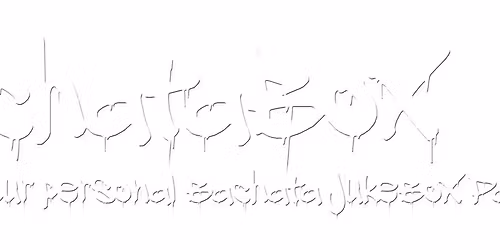 chataBOX
ur personal Bachata JukeBOX Pa